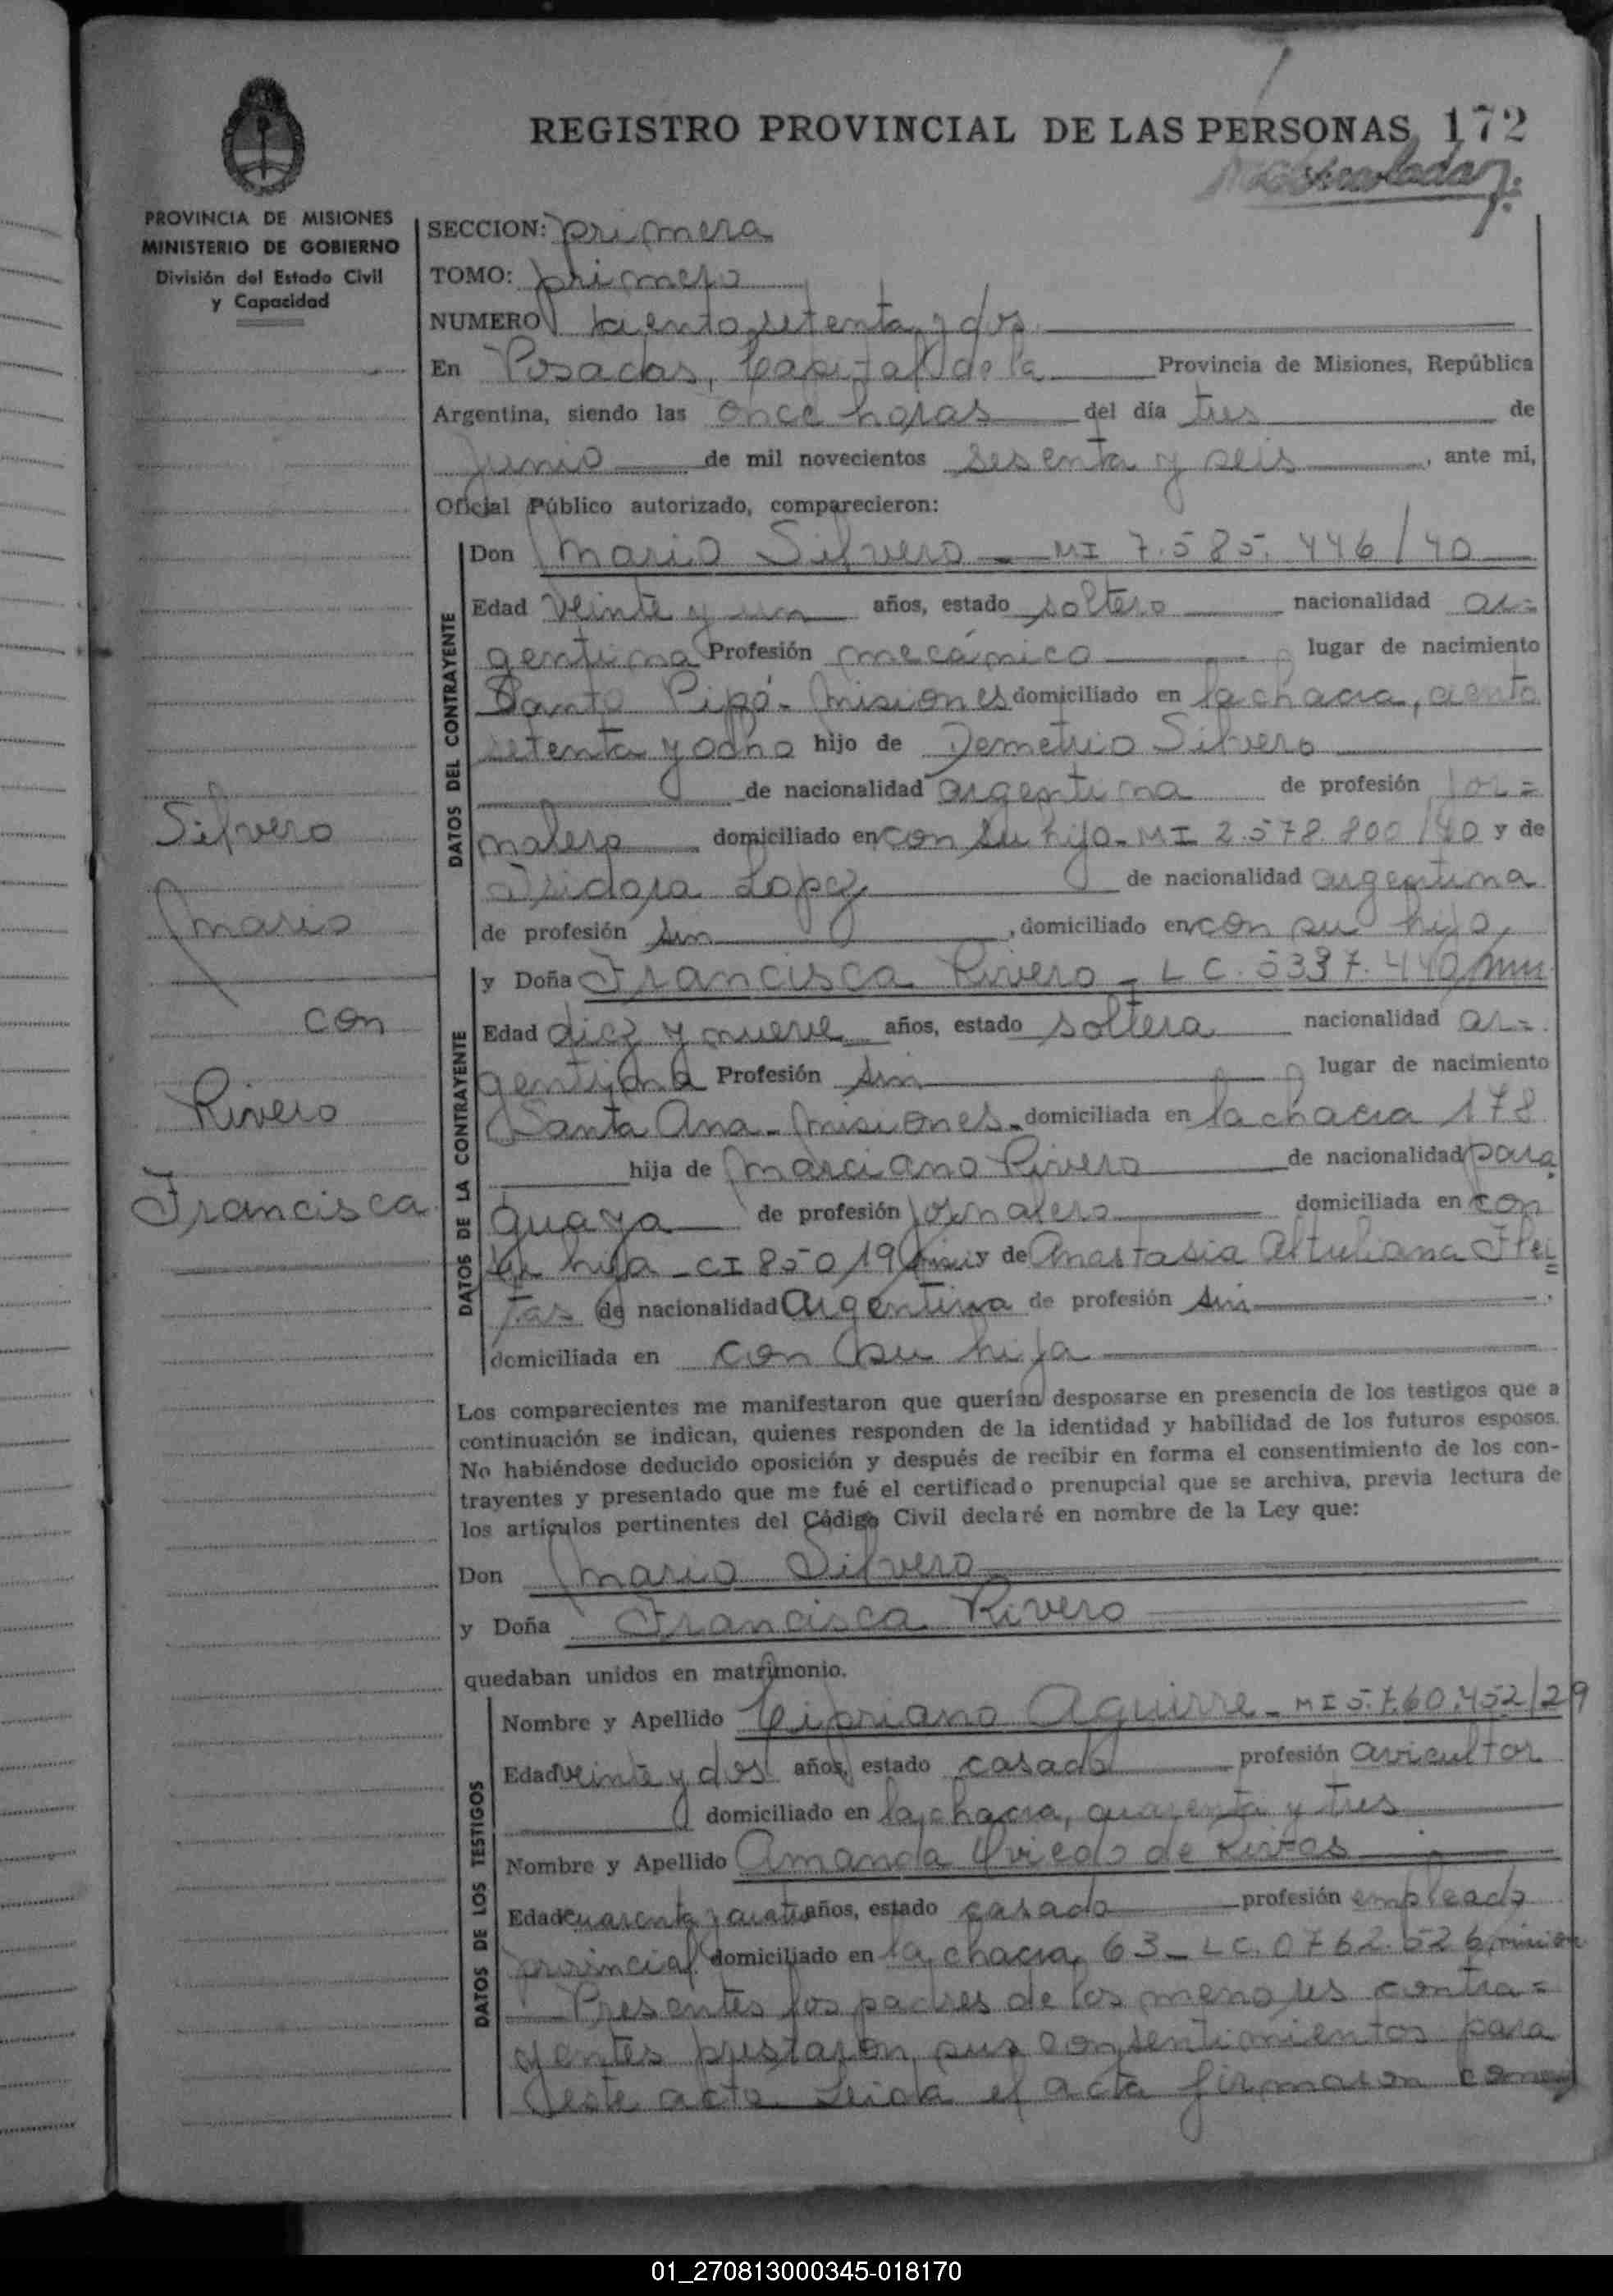 REGISTRO PROVINCIAL DE LAS PERSONAS 172
PROVINCIA DE MISIONES
MINISTERIO DE GOBIERNO
División del Estado Civil
y Capacidad
SECCION: primera
TOMO: primero
NUMERO ciento setenta y dos
En Posadas, Capital de la Provincia de Misiones, República
Argentina, siendo las once horas del día tres de
junio de mil novecientos sesenta y seis, ante mi,
Oficial Público autorizado, comparecieron:
DATOS DEL CONTRAYENTE
Don Mario Silvero - MI 7.585.446/40
Edad veinte y un años, estado soltero nacionalidad ar=
gentina Profesión mecánico lugar de nacimiento
Santo Pipó - Misiones domiciliado en la chacra, ciento
setenta y ocho hijo de Demetrio Silvero
de nacionalidad argentina de profesión jor=
nalero domiciliado en con su hijo - MI 2.578.800/40 y de
Isidora Lopez de nacionalidad argentina
de profesión sin, domiciliado en con su hijo,
Silvero
Mario
con
Rivero
Francisca
DATOS DE LA CONTRAYENTE
y Doña Francisca Rivero - LC. 5337.440
Edad diez y nueve años, estado soltera nacionalidad ar=
gentina Profesión sin lugar de nacimiento
Santa Ana - Misiones - domiciliada en la chacra 178
hija de Marciano Rivero de nacionalidad para
guaya de profesión jornalero domiciliada en con
su hija - CI 85019 y de Anastasia Altuliana Flei
tas de nacionalidad Argentina de profesión sin
domiciliada en con su hija
Los comparecientes me manifestaron que querían desposarse en presencia de los testigos que a
continuación se indican, quienes responden de la identidad y habilidad de los futuros esposos.
No habiéndose deducido oposición y después de recibir en forma el consentimiento de los con-
trayentes y presentado que me fué el certificado prenupcial que se archiva, previa lectura de
los artículos pertinentes del Código Civil declaré en nombre de la Ley que:
Don Mario Silvero
y Doña Francisca Rivero
quedaban unidos en matrimonio.
DATOS DE LOS TESTIGOS
Nombre y Apellido Cipriano Aguirre - MI 5.760.452/29
Edad veinte y dos años, estado casado profesión avicultor
domiciliado en la chacra, cuarenta y tres
Nombre y Apellido Amanda Oviedo de Rivas
Edad cuarenta y cuatro años, estado casado profesión empleado
provincial domiciliado en la chacra 63 - LC. 0762.526
Presentes los padres de los menores contra=
yentes prestaron sus consentimientos para
este acto. Leida el acta firmaron
01_270813000345-018170